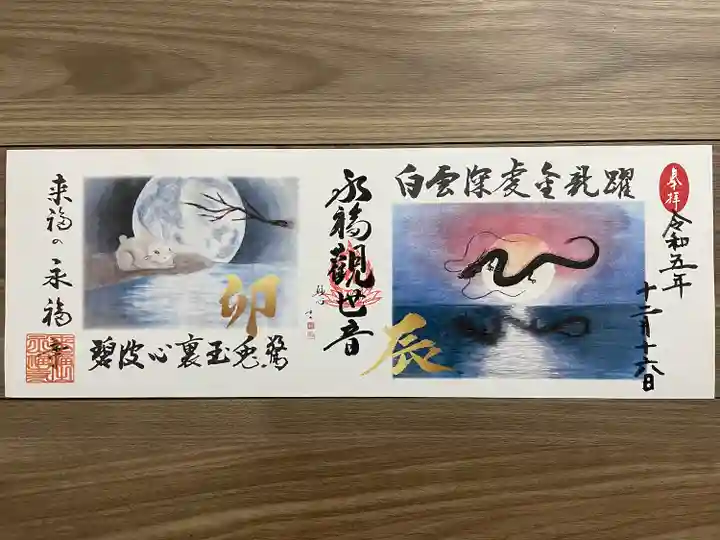 奉拝
令和五年
十二月十六日
白雲深處金龍躍
辰
永福觀世音
卯
碧波心裏玉兎驚
来福の永福寺